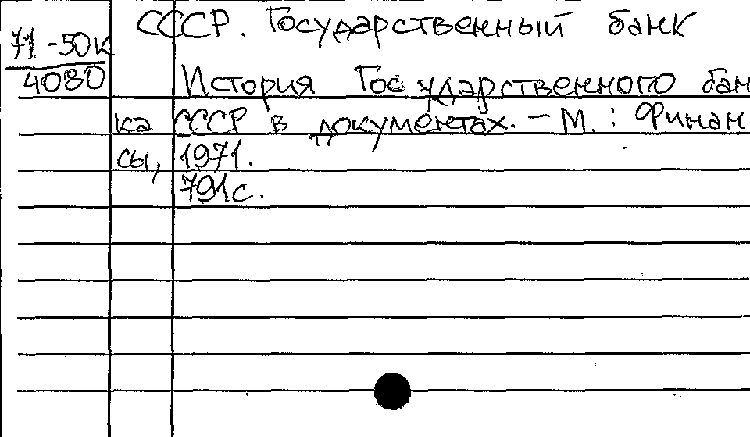 СССР. Государственный банк
71-50к
4080
История Государственного бан
ка СССР в документах. – М. : Финан
сы, 1971.
791с.